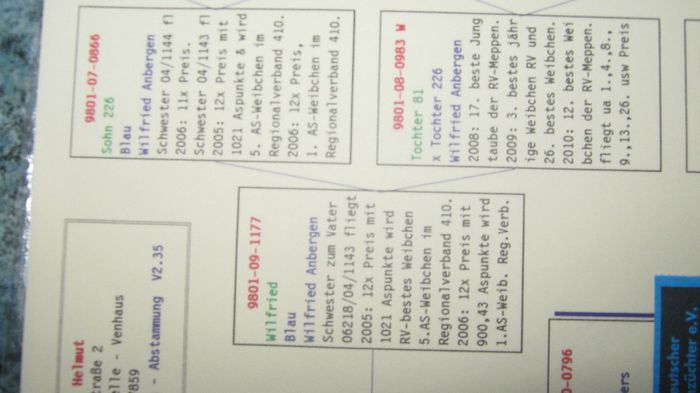 9801-07-0866
Sohn 226
Blau
Wilfried Anbergen
Schwester 04/1144 fl
2006: 11x Preis.
Schwester 04/1143 fl
2005: 12x Preis mit
1021 Aspunkte & wird
5. AS-Weibchen im
Regionalverband 410.
2006: 12x Preis,
1. AS-Weibchen im
Regionalverband 410.
9801-08-0983 W
Tochter 81
x Tochter 226
Wilfried Anbergen
2008: 17. beste Jung
taube der RV-Meppen.
2009: 3. bestes jähr
ige Weibchen RV und
26. bestes Weibchen.
2010: 12. bestes Wei
bchen der RV-Meppen.
fliegt ua 1.,4.,8.,
9.,13.,26. usw Preis
9801-09-1177
Wilfried
Blau
Wilfried Anbergen
Schwester zum Vater
06218/04/1143 fliegt
2005: 12x Preis mit
1021 Aspunkte wird
RV-bestes Weibchen
5.AS-Weibchen im
Regionalverband 410.
2006: 12x Preis mit
900,43 Aspunkte wird
1.AS-Weib. Reg.Verb.
Helmut
traße 2
elle - Venhaus
7859
- Abstammung V2.35
0-0796
ers
eutscher
nzüchter e.V.